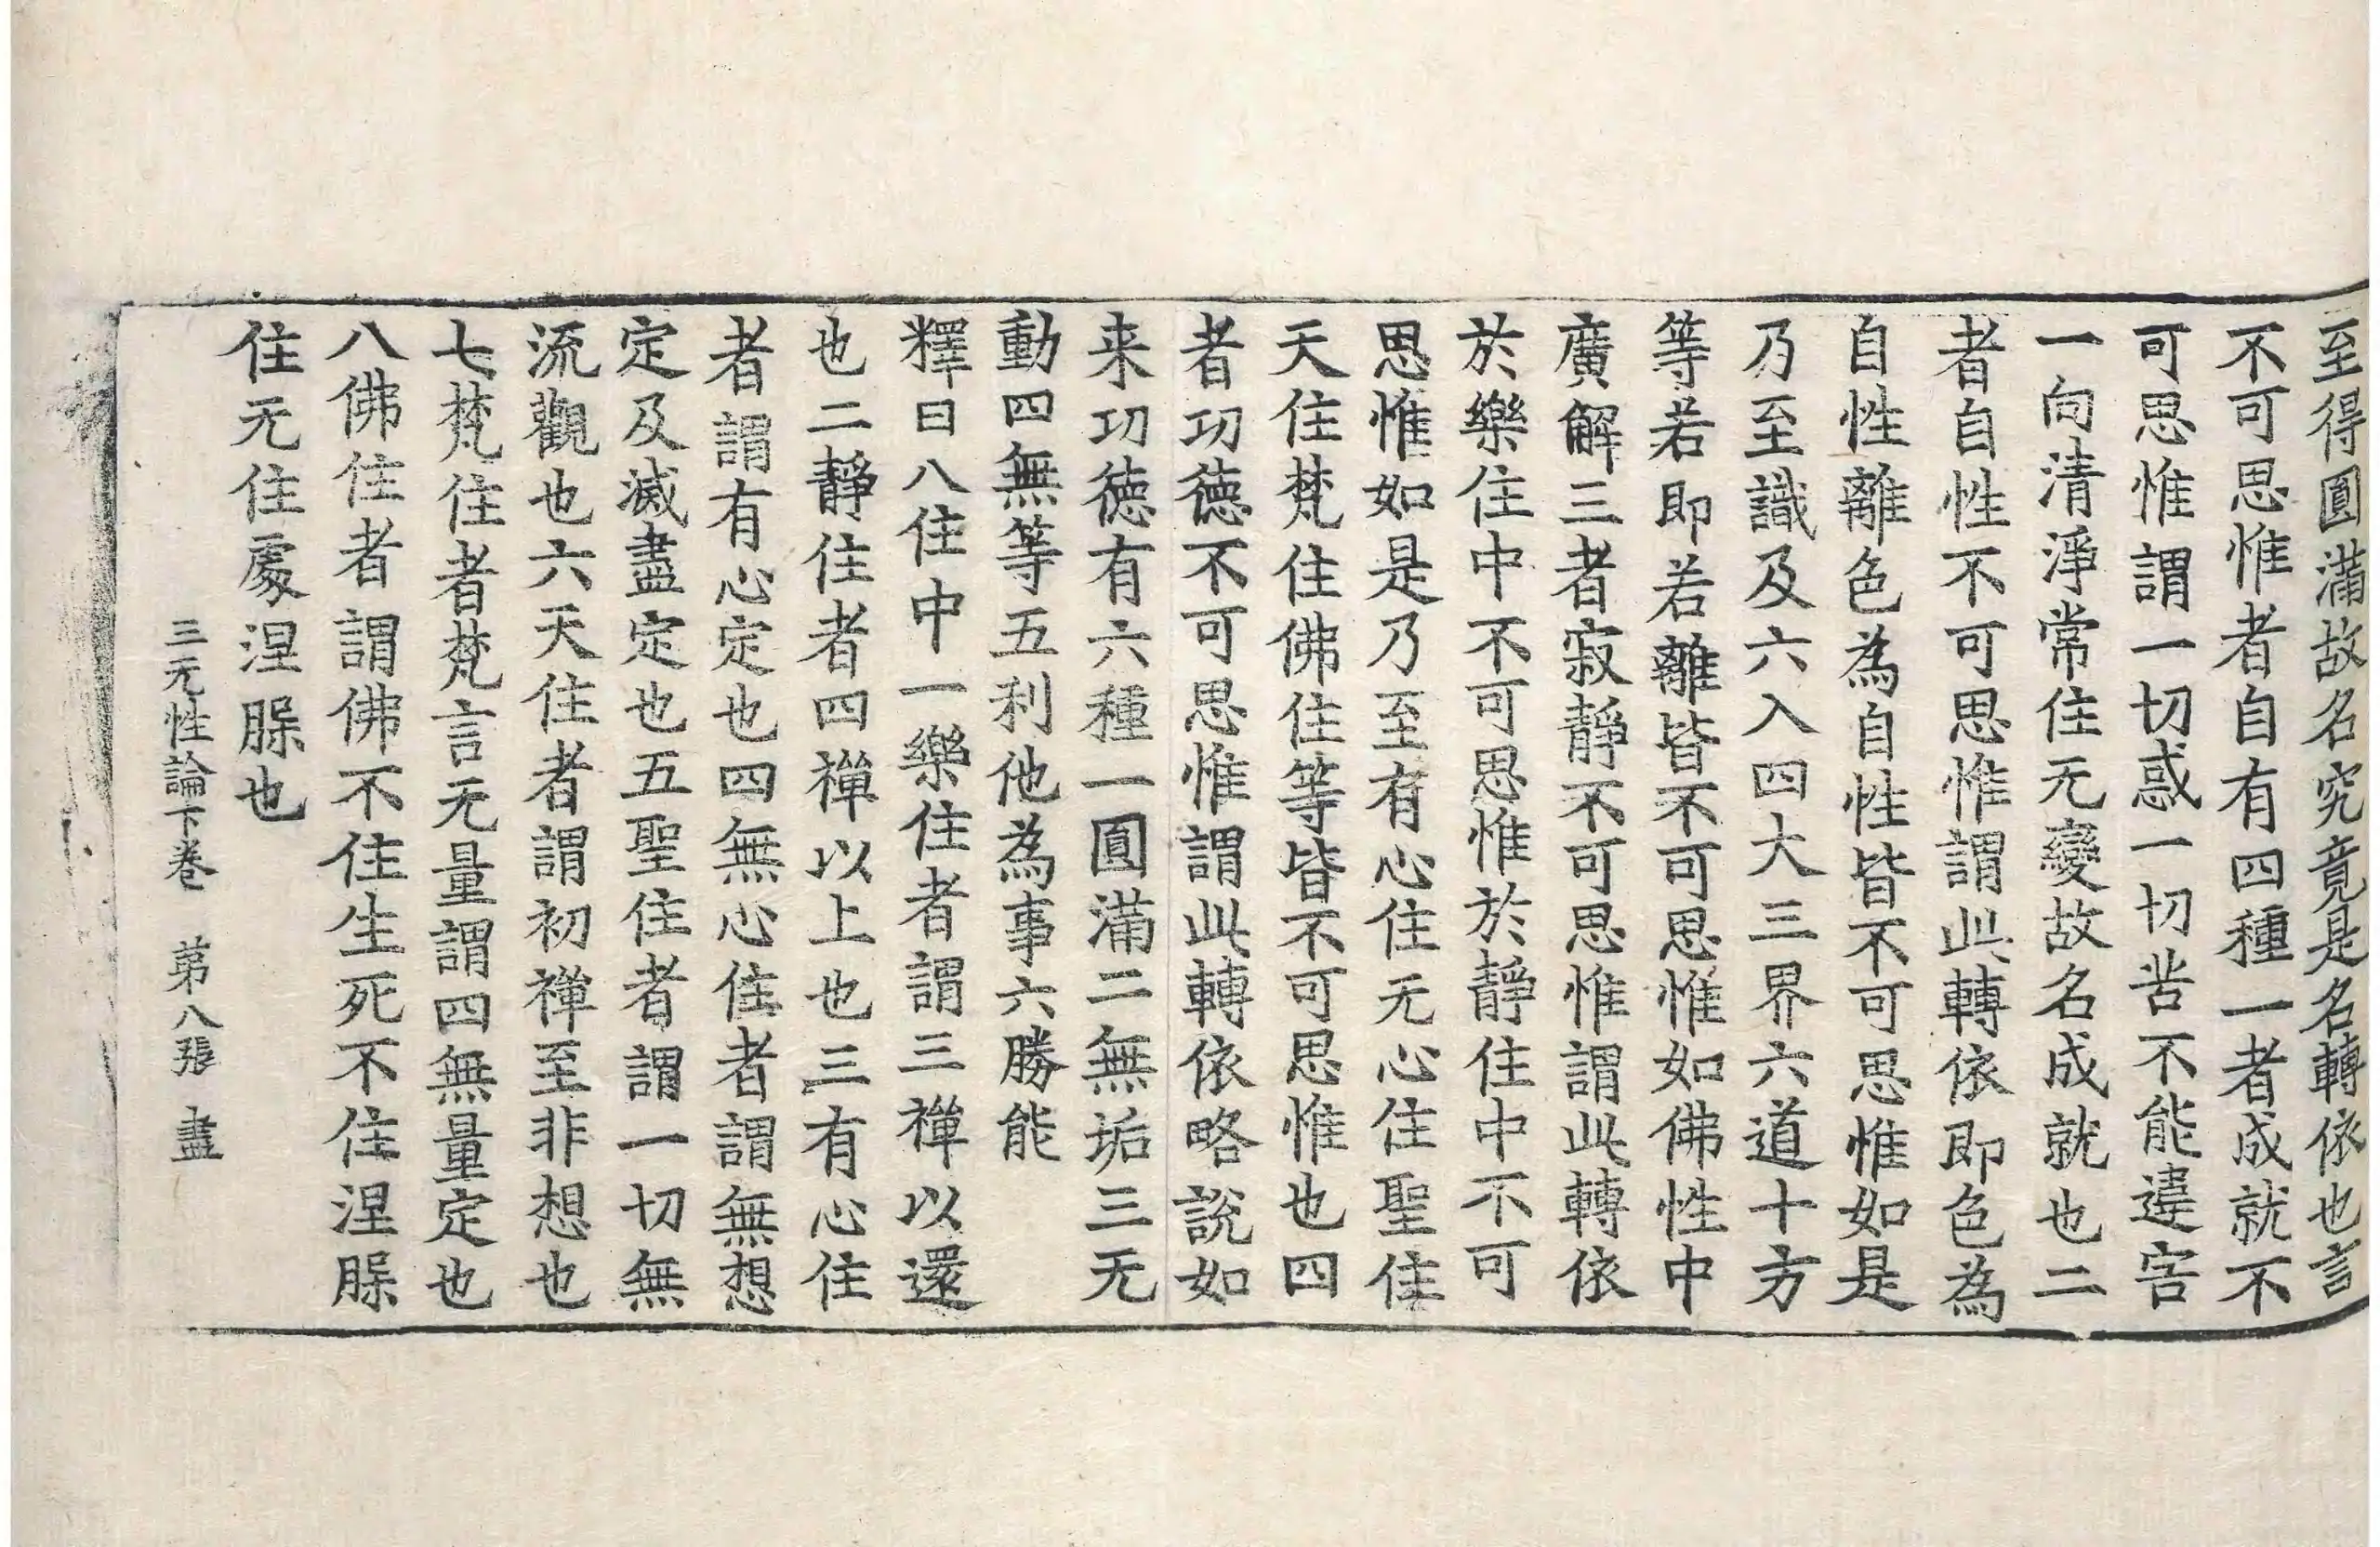 至得圓滿故名究竟是名轉依也言
不可思惟者自有四種一者成就不
可思惟謂一切惑一切苦不能違害
一向清淨常住无變故名成就也二
者自性不可思惟謂此轉依即色為
自性離色為自性皆不可思惟如是
乃至識及六入四大三界六道十方
等若即若離皆不可思惟如佛性中
廣解三者寂靜不可思惟謂此轉依
於樂住中不可思惟於靜住中不可
思惟如是乃至有心住无心住聖住
天住梵住佛住等皆不可思惟也四
者功德不可思惟謂此轉依略說如
来功德有六種一圓滿二無垢三无
動四無等五利他為事六勝能
釋曰八住中一樂住者謂三禪以還
也二靜住者四禪以上也三有心住
者謂有心定也四無心住者謂無想
定及滅盡定也五聖住者謂一切無
流觀也六天住者謂初禪至非想也
七梵住者梵言无量謂四無量定也
八佛住者謂佛不住生死不住涅槃
住无住處涅槃也
三无性論下卷　苐八張　盡